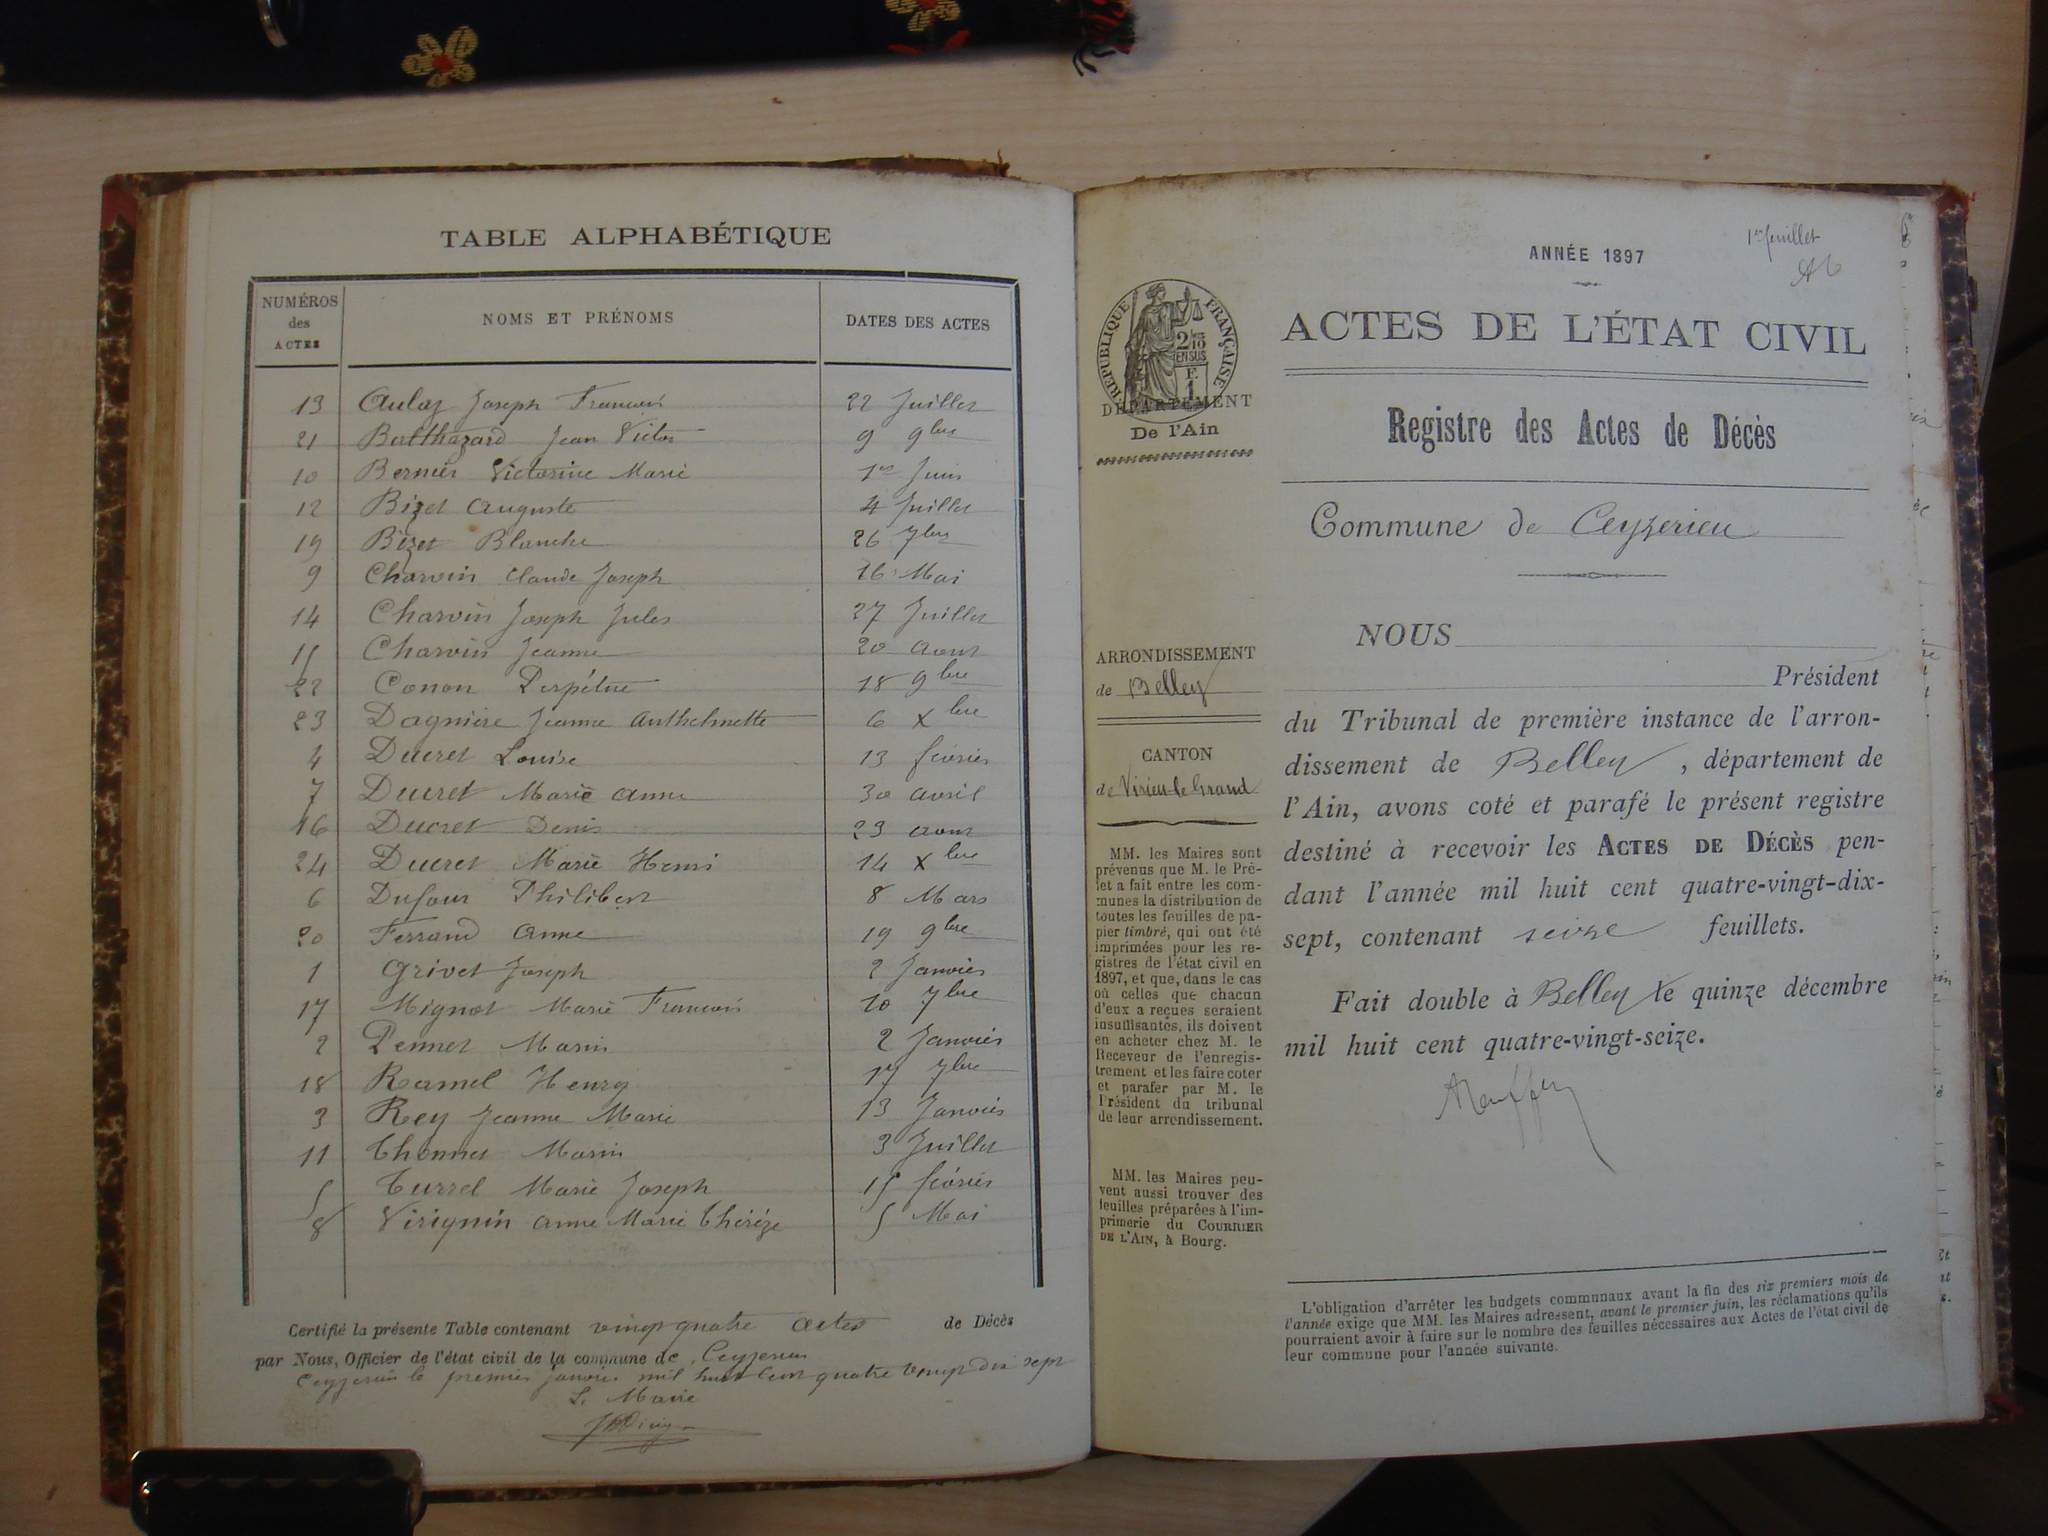 TABLE ALPHABÉTIQUE
NUMÉROS des ACTES
NOMS ET PRÉNOMS
DATES DES ACTES
13 Aulaz Joseph François 22 Juillet
21 Balthazard Jean Victor 9 9bre
10 Bernier Victorine Marie 1er Juin
12 Bizet Auguste 4 Juillet
19 Bizet Blanche 26 7bre
9 Charvin Claude Joseph 16 Mai
14 Charvin Joseph Jules 27 Juillet
15 Charvin Jeanne 20 aout
22 Conon Perpétue 18 9bre
23 Dagnière Jeanne Anthelmette 6 Xbre
4 Ducret Louise 13 février
7 Ducret Marie Anne 30 avril
16 Ducret Denis 23 aout
24 Ducret Marie Henri 14 Xbre
6 Dufour Philibert 8 Mars
20 Ferrand Anne 19 9bre
1 Grivet Joseph 2 Janvier
17 Mignot Marie François 10 7bre
2 Pennet Marin 2 Janvier
18 Ramel Henry 17 7bre
3 Rey Jeanne Marie 13 Janvier
11 Thonnet Marin 3 Juillet
5 Turrel Marie Joseph 15 février
8 Virignin Anne Marie Théréze 5 Mai
Certifié la présente Table contenant vingt quatre actes de Décès
par Nous, Officier de l'état civil de la commune de Ceyzerieu
Ceyzerieu le premier janvier mil huit cent quatre vingt dix sept
Le Maire
1er feuillet
ANNÉE 1897
RÉPUBLIQUE FRANÇAISE
2/10 EN SUS
F. 1
DÉPARTEMENT
De l'Ain
ACTES DE L'ÉTAT CIVIL
Registre des Actes de Décès
Commune de Ceyzerieu
ARRONDISSEMENT
de Belley
CANTON
de Virieu-le-Grand
MM. les Maires sont
prévenus que M. le Pré-
fet a fait entre les com-
munes la distribution de
toutes les feuilles de pa-
pier timbré, qui ont été
imprimées pour les re-
gistres de l'état civil en
1897, et que, dans le cas
où celles que chacun
d'eux a reçues seraient
insuffisantes, ils doivent
en acheter chez M. le
Receveur de l'enregis-
trement et les faire coter
et parafer par M. le
Président du tribunal
de leur arrondissement.
MM. les Maires peu-
vent aussi trouver des
feuilles préparées à l'im-
primerie du COURRIER
DE L'AIN, à Bourg.
NOUS
Président
du Tribunal de première instance de l'arron-
dissement de Belley, département de
l'Ain, avons coté et parafé le présent registre
destiné à recevoir les ACTES DE DÉCÈS pen-
dant l'année mil huit cent quatre-vingt-dix-
sept, contenant seize feuillets.
Fait double à Belley le quinze décembre
mil huit cent quatre-vingt-seize.
L'obligation d'arrêter les budgets communaux avant la fin des six premiers mois de
l'année exige que MM. les Maires adressent, avant le premier juin, les réclamations qu'ils
pourraient avoir à faire sur le nombre des feuilles nécessaires aux Actes de l'état civil de
leur commune pour l'année suivante.